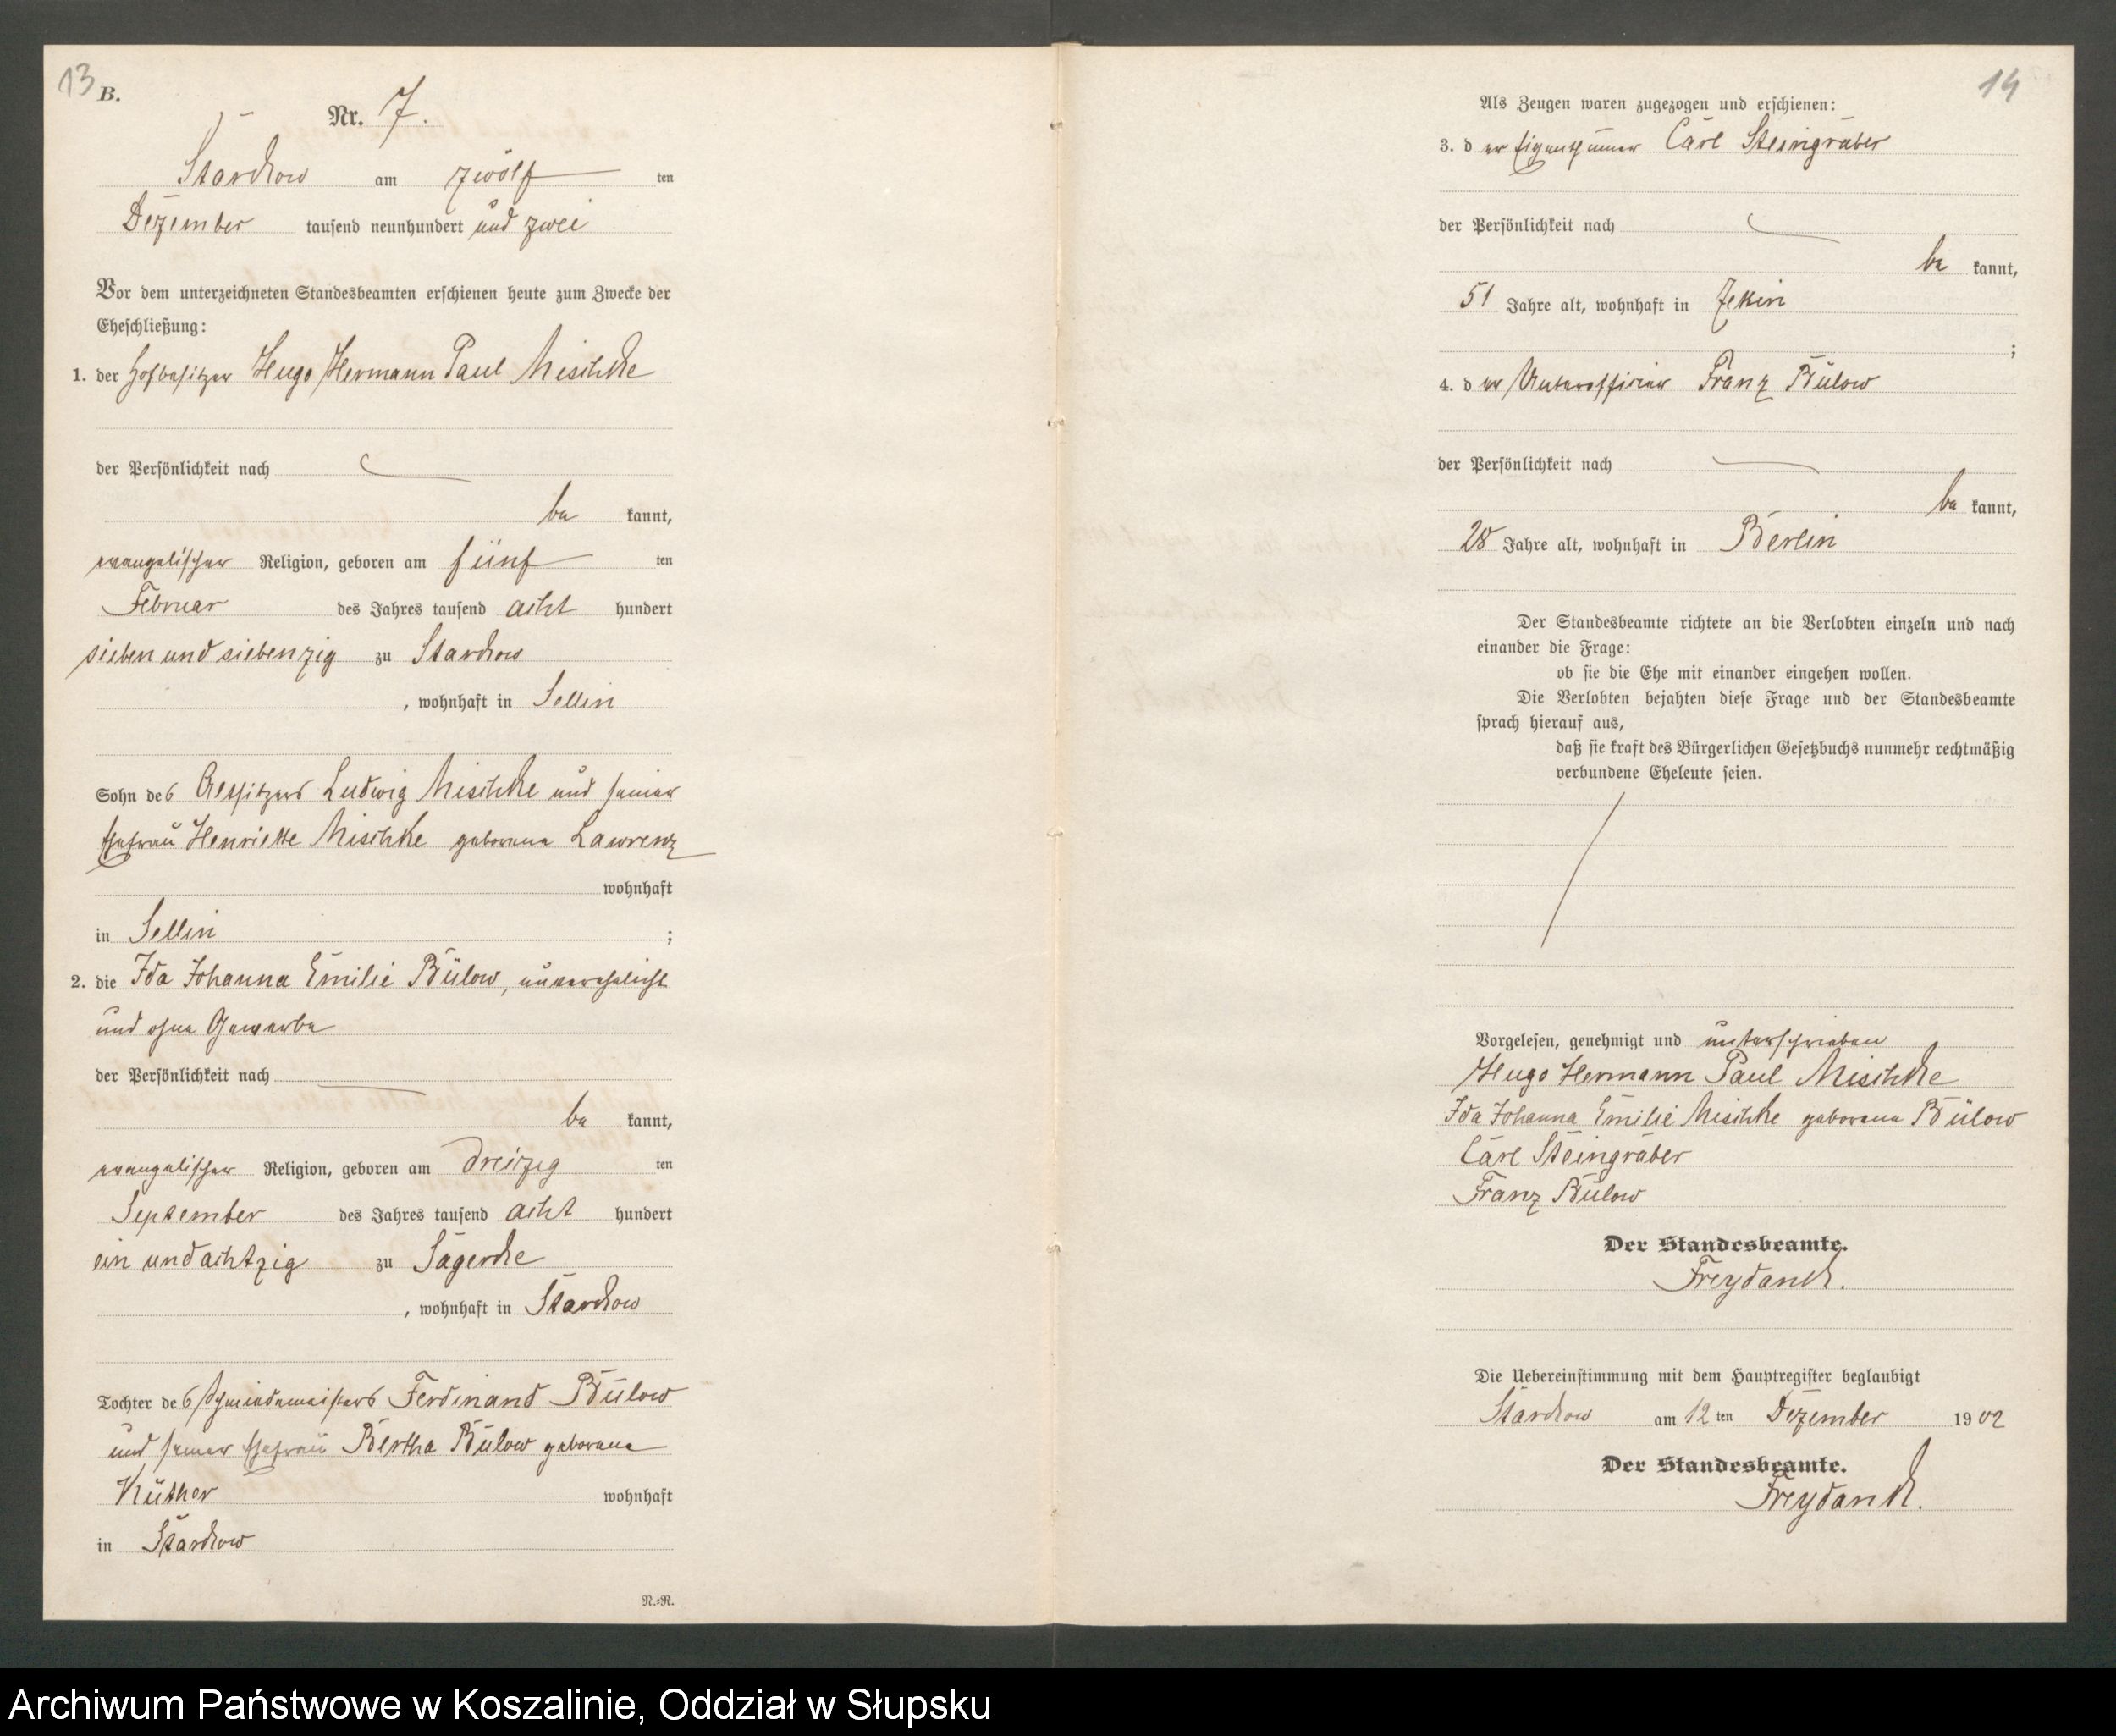 13
B.
Nr. 7.
Starckow am zwölf ten
Dezember tausend neunhundert und zwei
Vor dem unterzeichneten Standesbeamten erschienen heute zum Zwecke der
Eheschließung:
1. der Hofbesitzer Hugo Hermann Paul Mischke
der Persönlichkeit nach
be kannt,
evangelischer Religion, geboren am fünf ten
Februar des Jahres tausend acht hundert
sieben und siebenzig zu Starckow
, wohnhaft in Sellin
Sohn des Altsitzers Ludwig Mischke und seiner
Ehefrau Henriette Mischke geborene Lawrenz
wohnhaft
in Sellin ;
2. die Ida Johanna Emilie Bülow, unverehelicht
und ohne Gewerbe
der Persönlichkeit nach
be kannt,
evangelischer Religion, geboren am dreizig ten
September des Jahres tausend acht hundert
ein und achtzig zu Sagerke
, wohnhaft in Starckow
Tochter des Schmiedemeisters Ferdinand Bülow
und seiner Ehefrau Bertha Bülow geborene
Küther wohnhaft
in Starckow
N.=R.
14
Als Zeugen waren zugezogen und erschienen:
3. d er Eigenthümer Carl Steingräber
der Persönlichkeit nach
be kannt,
51 Jahre alt, wohnhaft in Zekin
;
4. d er Unterofficier Franz Bülow
der Persönlichkeit nach
be kannt,
28 Jahre alt, wohnhaft in Berlin
Der Standesbeamte richtete an die Verlobten einzeln und nach
einander die Frage:
ob sie die Ehe mit einander eingehen wollen.
Die Verlobten bejahten diese Frage und der Standesbeamte
sprach hierauf aus,
daß sie kraft des Bürgerlichen Gesetzbuchs nunmehr rechtmäßig
verbundene Eheleute seien.
Vorgelesen, genehmigt und unterschrieben
Hugo Hermann Paul Mischke
Ida Johanna Emilie Mischke geborene Bülow
Carl Steingräber
Franz Bülow
Der Standesbeamte.
Freydanck.
Die Uebereinstimmung mit dem Hauptregister beglaubigt
Starckow am 12 ten Dezember 19 02
Der Standesbeamte.
Freydanck.
Archiwum Państwowe w Koszalinie, Oddział w Słupsku